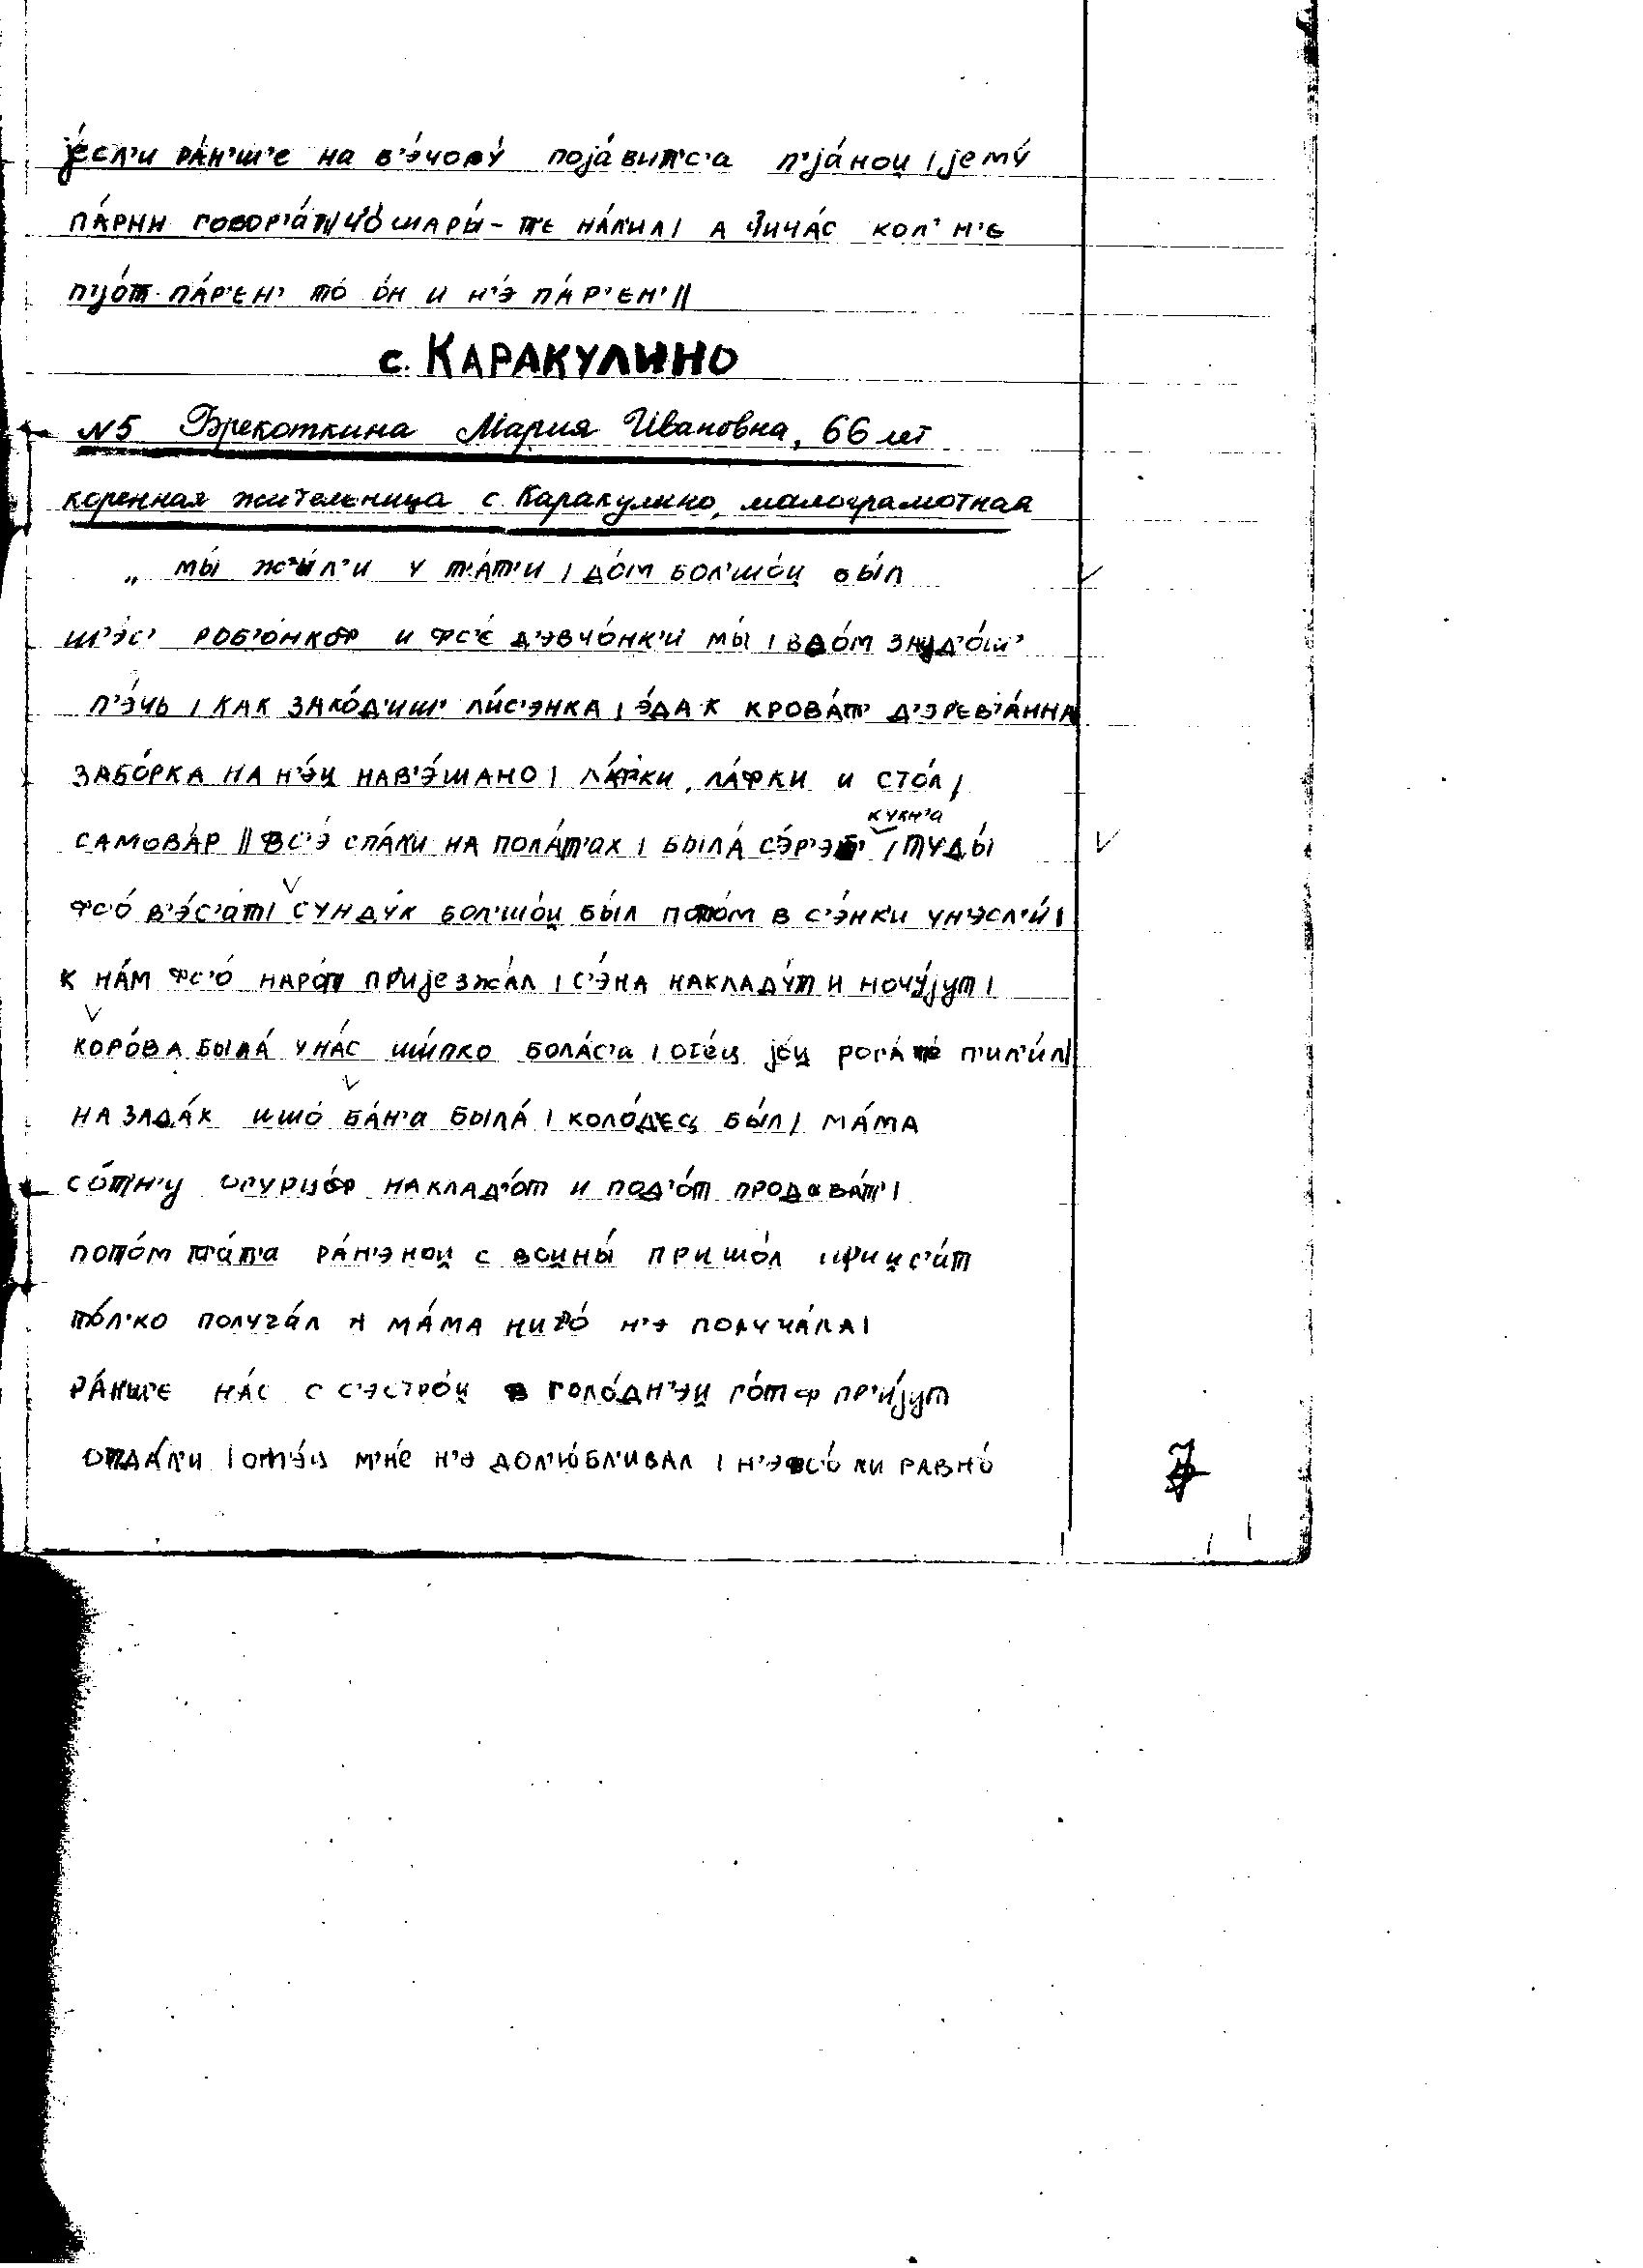 jе́сл'и ра́н'ш'е на в'э́чору́ поjа́вит'с'а п'jа́ноц | jему́
па́рни говор'а́т | чо́ шары́ - те нали́л | а сича́с кол' н'е
п'jо́т па́р'ен' то́ о́н и н'э́ па́р'ен' ||
с. Каракулино
№5 Брекоткина Мария Ивановна, 66 лет
коренная жительница с. Каракулино, малограмотная
„ мы́ ж'и́л'и у т'а́т'и | до́м бол'шо́и̯ был
ш'э́с' роб'о́нкоф и фс'е́ д'эвчо́нк'и мы́ | в до́м
п'э́чь | как захо́д'иш' ли́с'энка | э́дак крова́т' д'эрев'а́нна
забо́рка на н'э́и̯ нав'э́шано | ла́фки, ла́фки и сто́л |
кухн'а
самова́р || вс'э́ спа́ли на пола́т'ах | была́ / туды́
фс'о́ в'э́с'ат | сунду́к бол'шо́и̯ бы́л пото́м в с'э́нки ун'эсл'и́ |
к на́м фс'о́ наро́т приjезжа́л | с'э́на накладу́т и ночу́jут |
коро́ва была́ у на́с ши́пко бола́с'а | оте́ц jе́и̯ рога́ те́ п'ил'и́л |
на зада́х ишо́ ба́н'а была́ | коло́дец бы́л | ма́ма
со́тн'у огурцо́ф наклад'о́т и под'о́т продава́т' |
пото́м т'а́т'а ра́н'энои̯ с вои̯ны́ пришо́л
то́л'ко получа́л а ма́ма ничо́ н'э получа́ла |
ра́нш'е на́с с с'эстро́и̯ в голо́дн'эи̯ го́т ф пр'и́jут
отда́л'и | отэ́ц м'не́ н'э дол'у́бл'ивал | н'э фс'о́ ли равно́
7